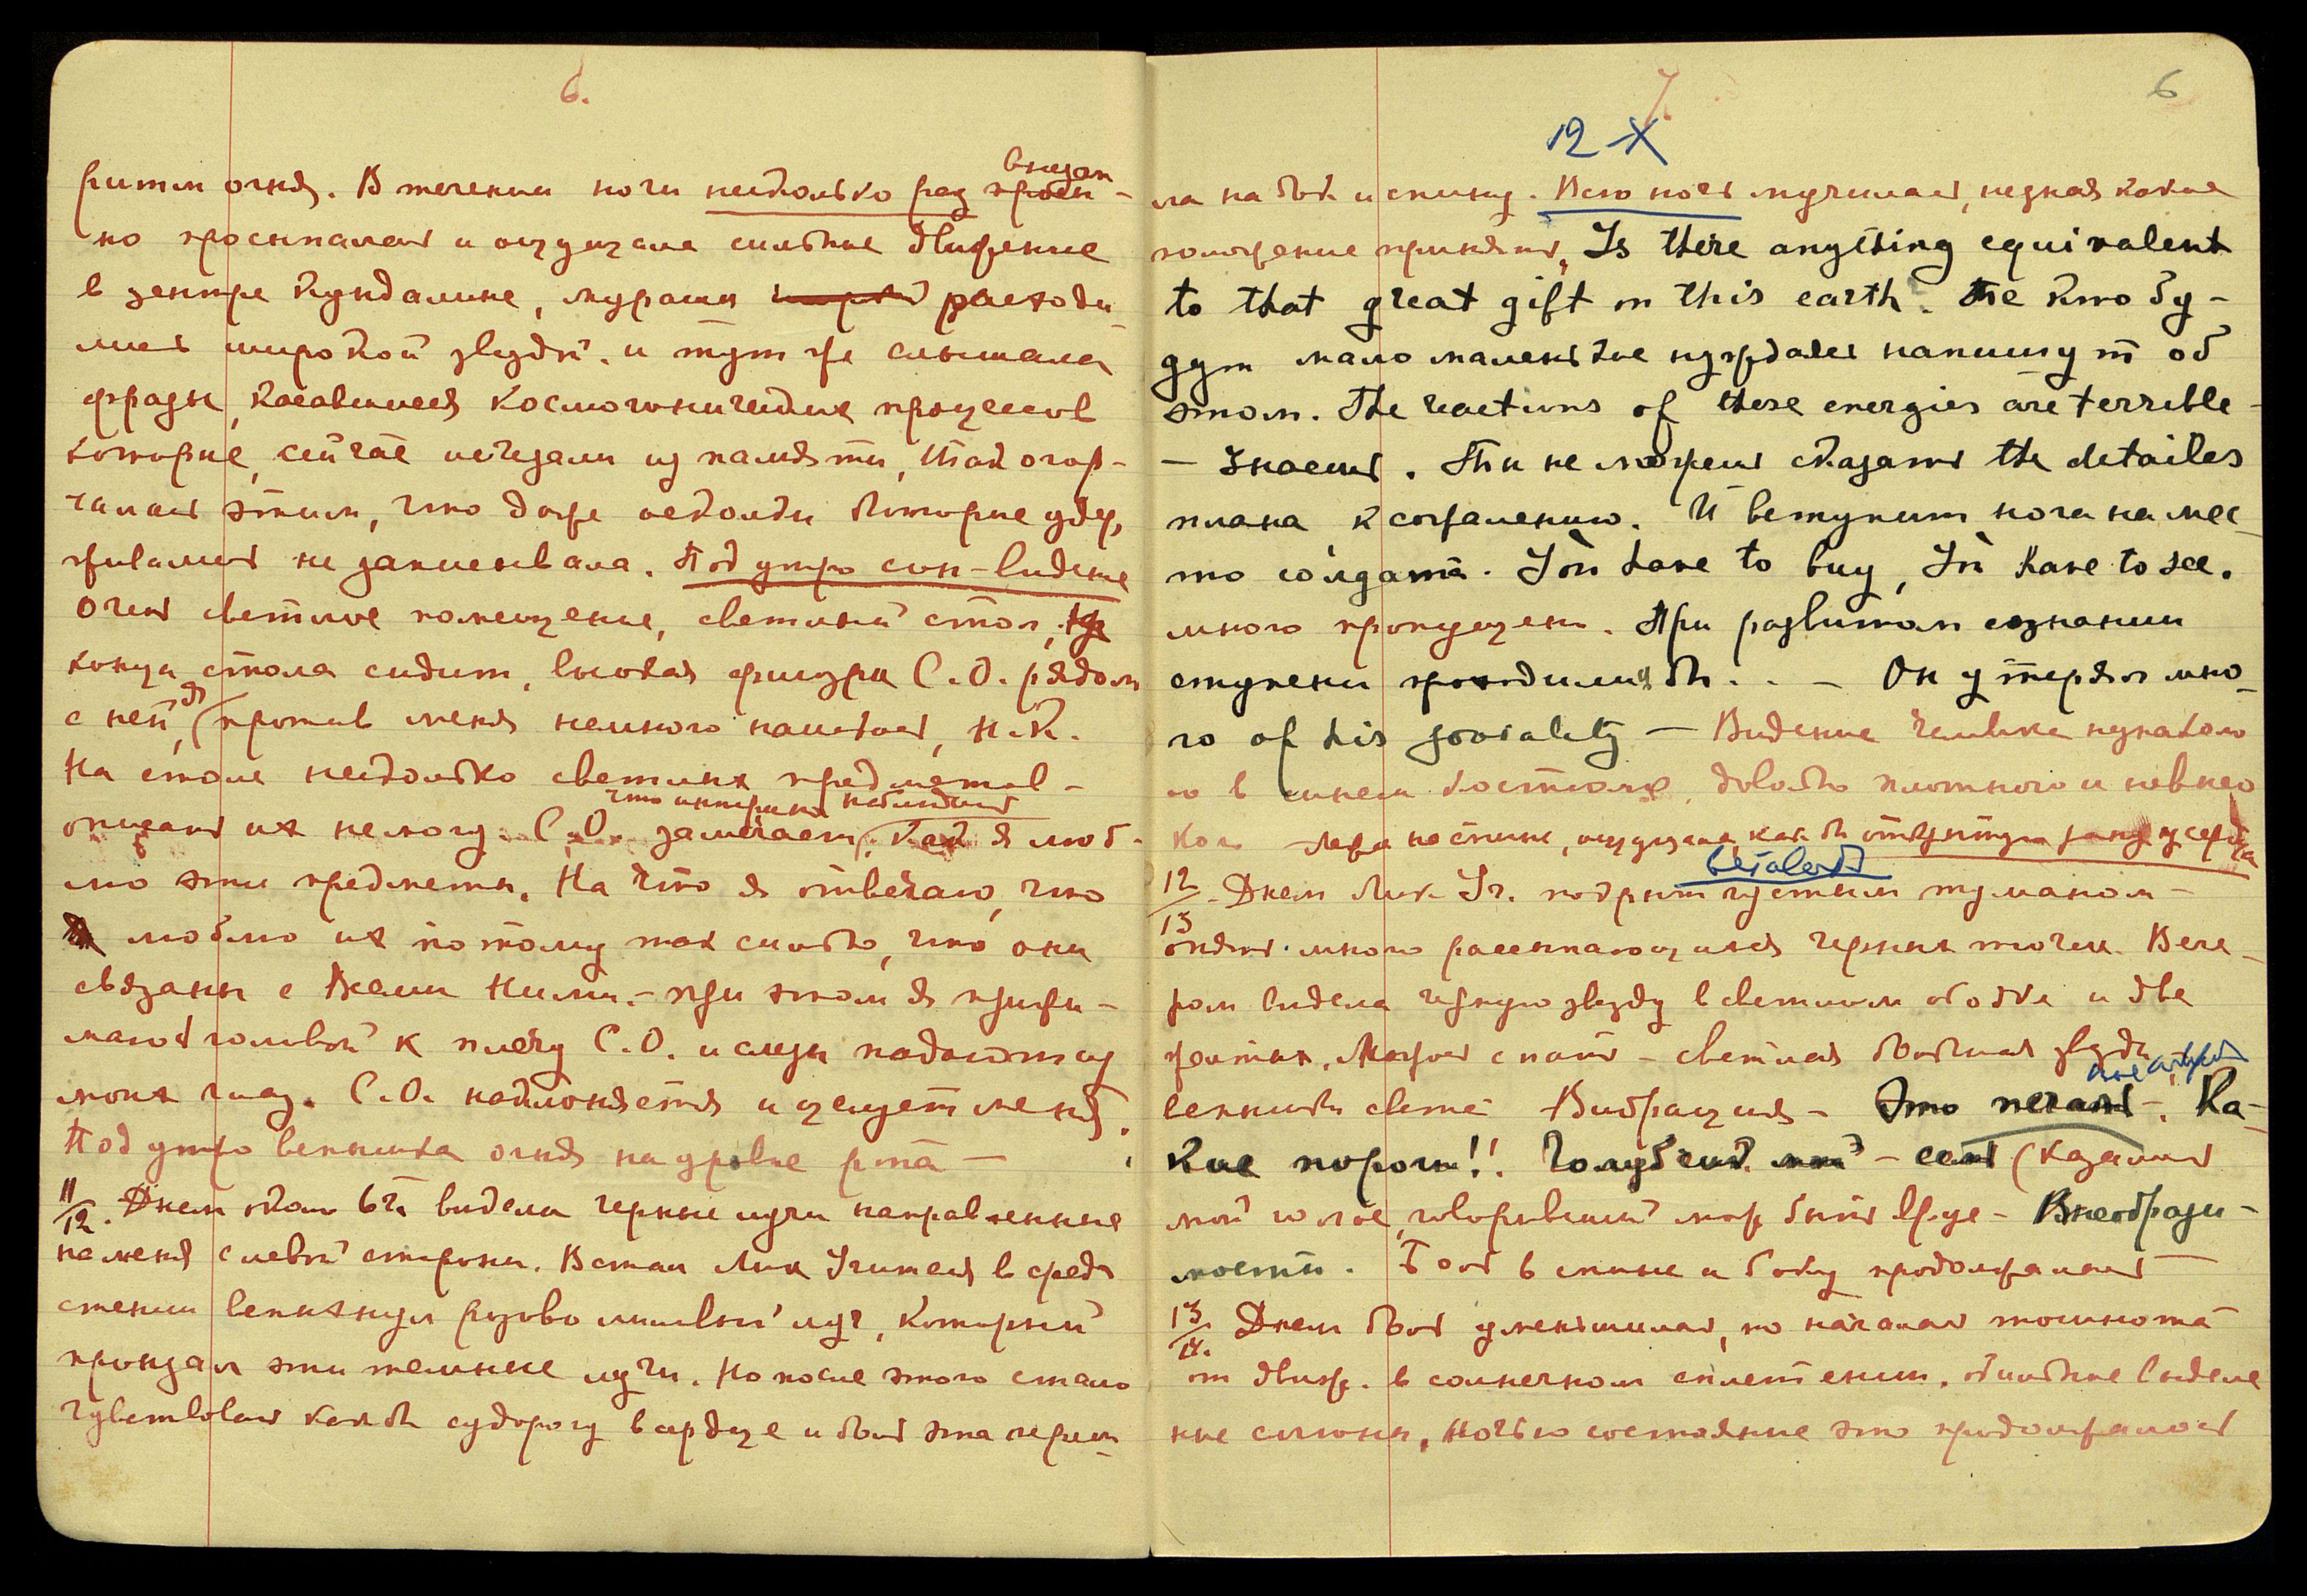 6.
внезап-
ритм огня. В течении ночи несколько раз
но просыпалась и ощущала сильное движение
в центре Кундалини, мурашки расходи-
лись широкой звездой. и тут же слышала
фразы, касавшиеся космогонических процессов
которые, сейчас исчезли из памяти, так огор-
чалась этим, что даже осколки которые уде-
рживались не записывала. Под утро сон-видение
Очень светлое помещение, светлый стол,
конца стола сидит, высокая фигура С.О. рядом
с ней я, (против меня немного наискось, Н.К.
На столе несколько светлых предметов -
что интересно наблюдать
описать их не могу. С.О. замечает, как я люб-
лю эти предметы. На что я отвечаю, что
люблю их потому так сильно, что они
связаны с Всеми Ними. - при этом я прижи-
маюсь головой к плечу С.О. и слезы падают из
моих глаз. С.О. наклоняется и целует меня.
Под утро вспышка огня на уровне рта —
11/12. Днем около 6 ч. видела черные лучи направленные
на меня с левой стороны. Встал Лик Учителя в сред-
стении вспыхнул розово лиловый луч, который
пронзал эти темные лучи. Но после этого стала
чувствовать как бы судорогу в сердце и боль эта переш-
7.
6
12 X
ла на бок и спину. Всю ночь мучилась, не зная какое
положение принять. Is there anything equivalent
to that great gift on this earth. Те кто бу-
дут мало маленькие нуждались напишут об
этом. The reactions of these energies are terrible -
— Знаешь. Ты не можешь сказать the detailes
плана, к сожалению. И вступит нога на мес-
то солдата. You have to buy, You have to see.
много пропущено. При развитом сознании
ступени проходились бы. . — Он утерял мно-
го of his joviality — Видение человека
в синем костюме, довольно плотного и невысо
кого Лежа на спине, ощущала как бы открытую рану у сердца
12/13. Днем Лик Уч. подернут густым туманом -
опять много рассыпающихся черных точек. Вече-
ром видела черную звезду в светлом ободке и две
желтых. Ложась спать - светлая большая звезда
вспышки света Вибрация - Это печать -. Ка-
кие пороги!! Голубчик мой - есть (казался
мой голос, говоривший мож. быть В<br>
мости. Боль в спине и боку продолжалась —
13/14. Днем боль уменьшилась, но началась тошнота
от движ. в солнечном сплетении. обильное выделе
ние слюны, Ночью состояние это продолжалось